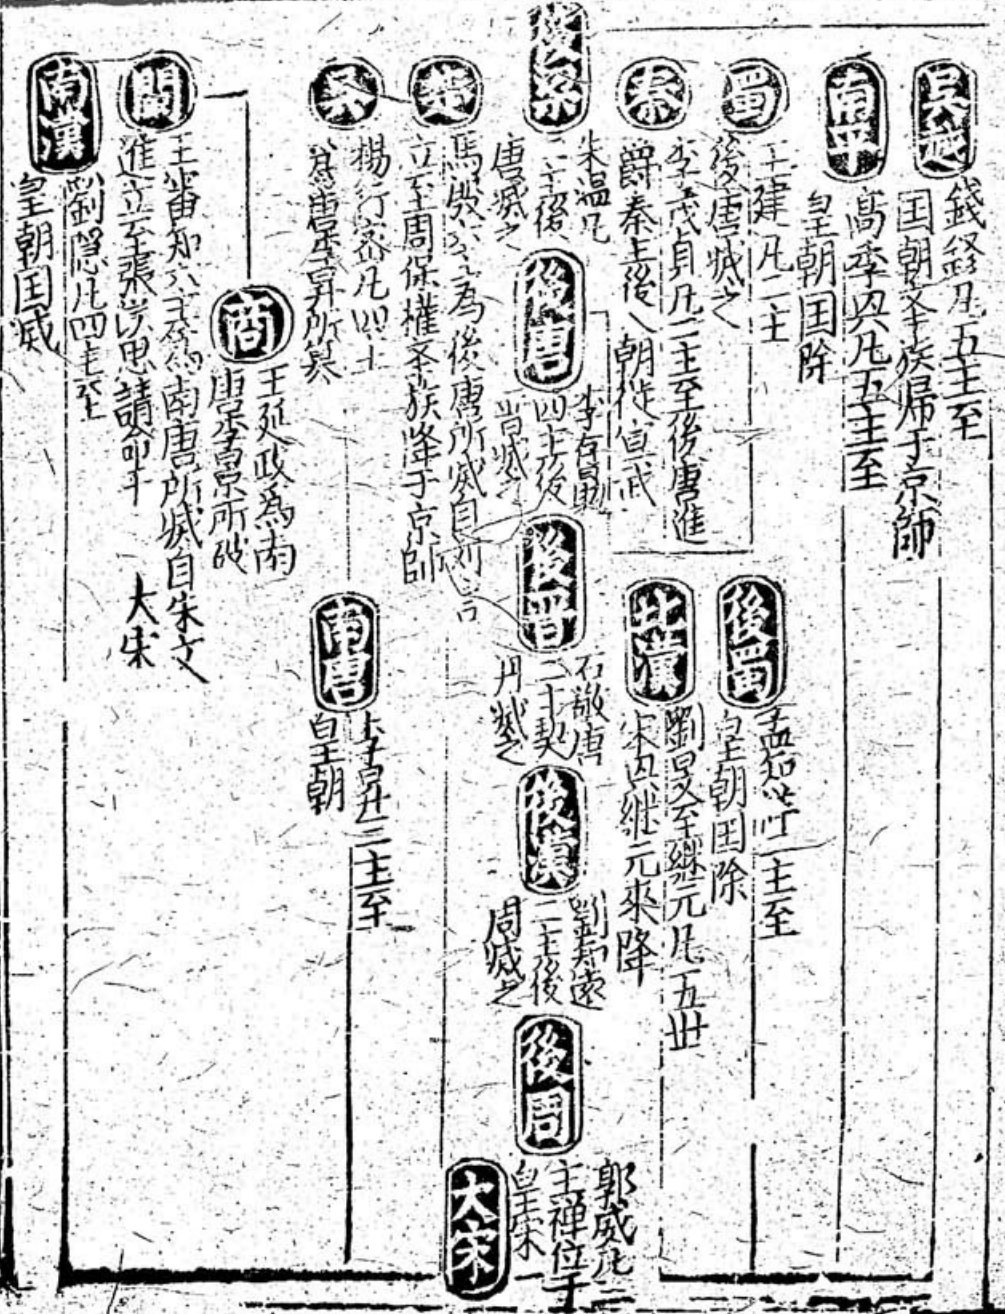 吳越
錢鏐凡五主至
国朝文
族歸于京師
南平
高季兴凡五主至
皇朝国除
蜀
王建凡二主
後唐滅之
後蜀
孟知祥二主至
皇朝国除
秦
李茂貞凡二主至後唐進
爵秦王後入朝徙
北漢
劉旻至継元凡五世
宋兵継元來降
後梁
朱温凡
二主後
唐滅之
後唐
李存勗
四主後
晋滅之
後晋
石敬唐
二主契
丹滅之
後漢
劉知遠
二主後
周滅之
後周
郭威凡三
主禅位于
皇宋
大宋
楚
馬殷
為後唐所滅自
立至周保權
族降于京師
吳
楊行密凡四主
為唐李昪所
南唐
李昪三主至
皇朝
閩
王審知六主
為南唐所滅自朱文
進立至張
思請命于
大宋
商
王延政為南
唐李景所破
南漢
劉隠凡四主至
皇朝国滅